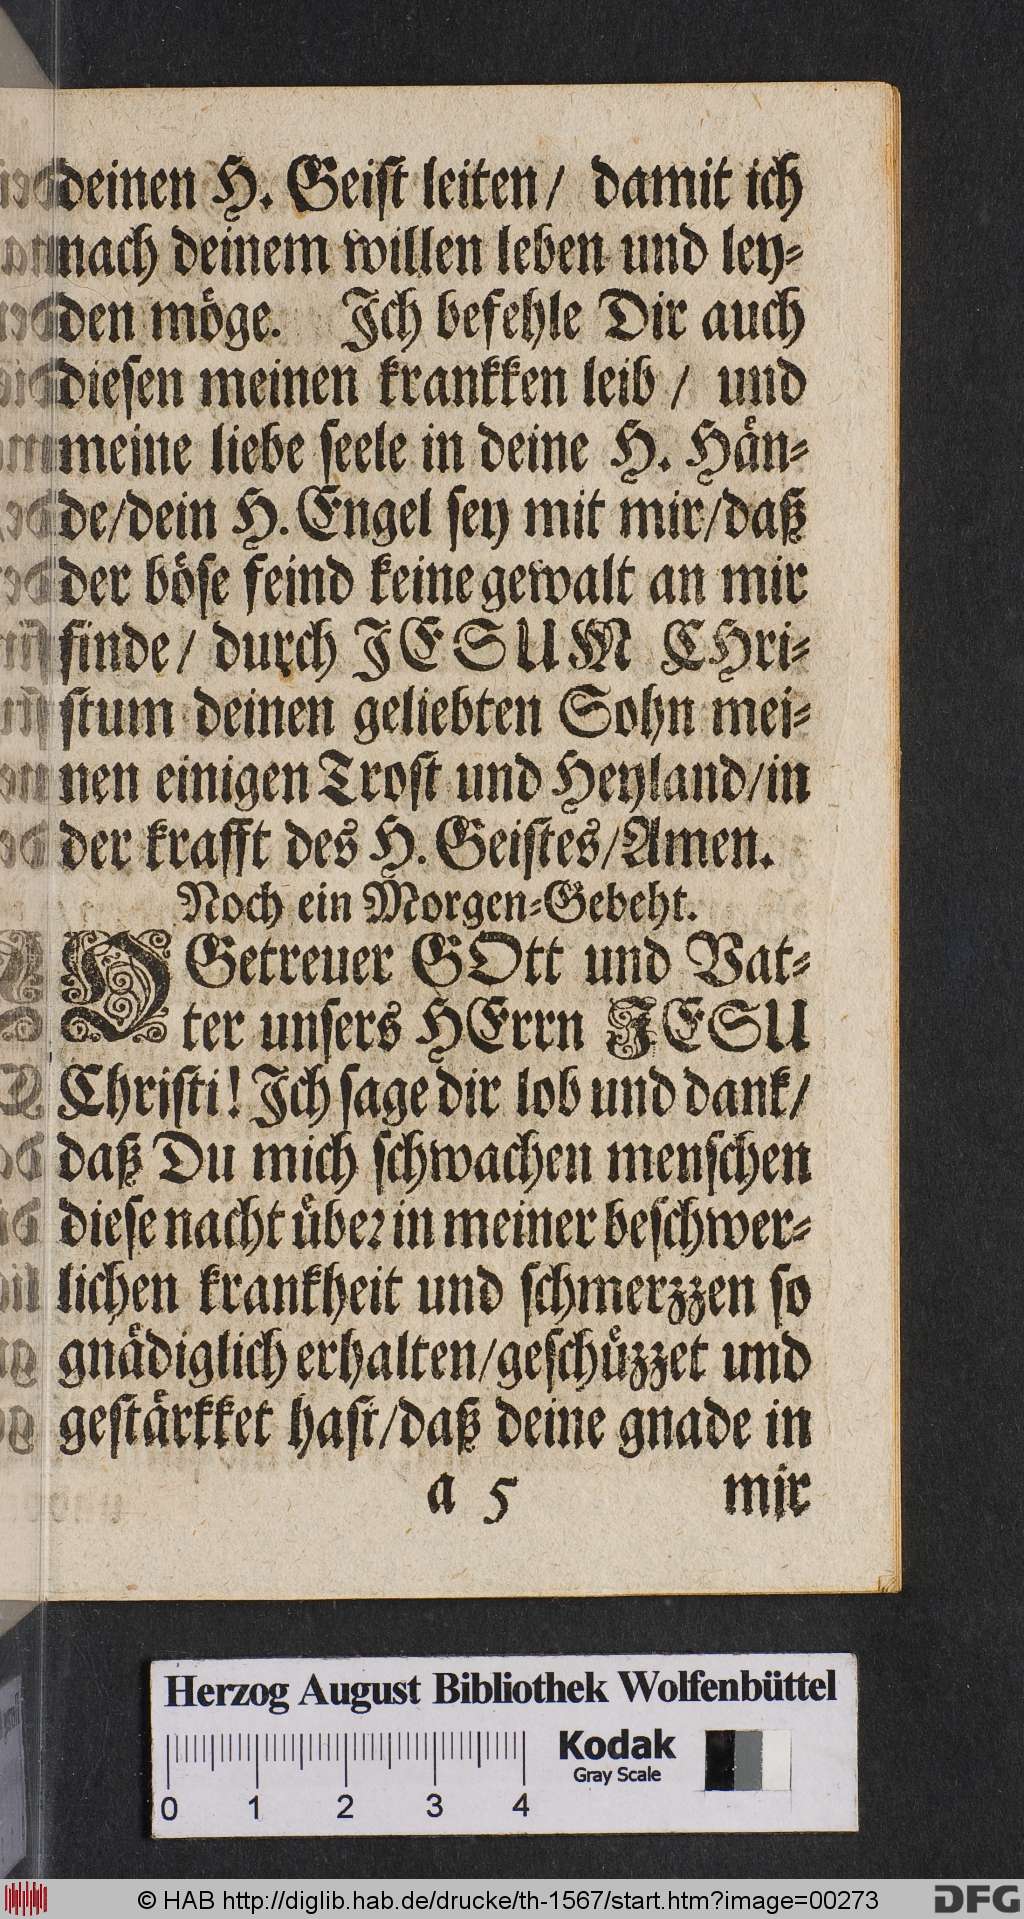 deinen H. Geiſt leiten/ damit ich
nach deinem willen leben und ley⸗
den moͤge. Ich befehle Dir auch
dieſen meinen krankken leib / und
meine liebe ſeele in deine H. Haͤn⸗
de/dein H. Engel ſey mit mir/daß
der boͤſe feind keine gewalt an mir
finde/ durch JESUM CHri⸗
ſtum deinen geliebten Sohn mei⸗
nen einigen Troſt und Heyland/in
der krafft des H. Geiſtes/Amen.
Noch ein Morgen⸗Gebeht.
O Getreuer GOtt und Vat⸗
ter unſers HErrn JESU
Chriſti! Ich ſage dir lob und dank/
daß Du mich ſchwachen menſchen
dieſe nacht uͤber in meiner beſchwer⸗
lichen krankheit und ſchmerzzen ſo
gnaͤdiglich erhalten/geſchuͤzzet und
geſtaͤrkket haſt/daß deine gnade in
a 5 mir
Herzog August Bibliothek Wolfenbüttel
Kodak
Gray Scale
0 1 2 3 4
© HAB http://diglib.hab.de/drucke/th-1567/start.htm?image=00273
DFG